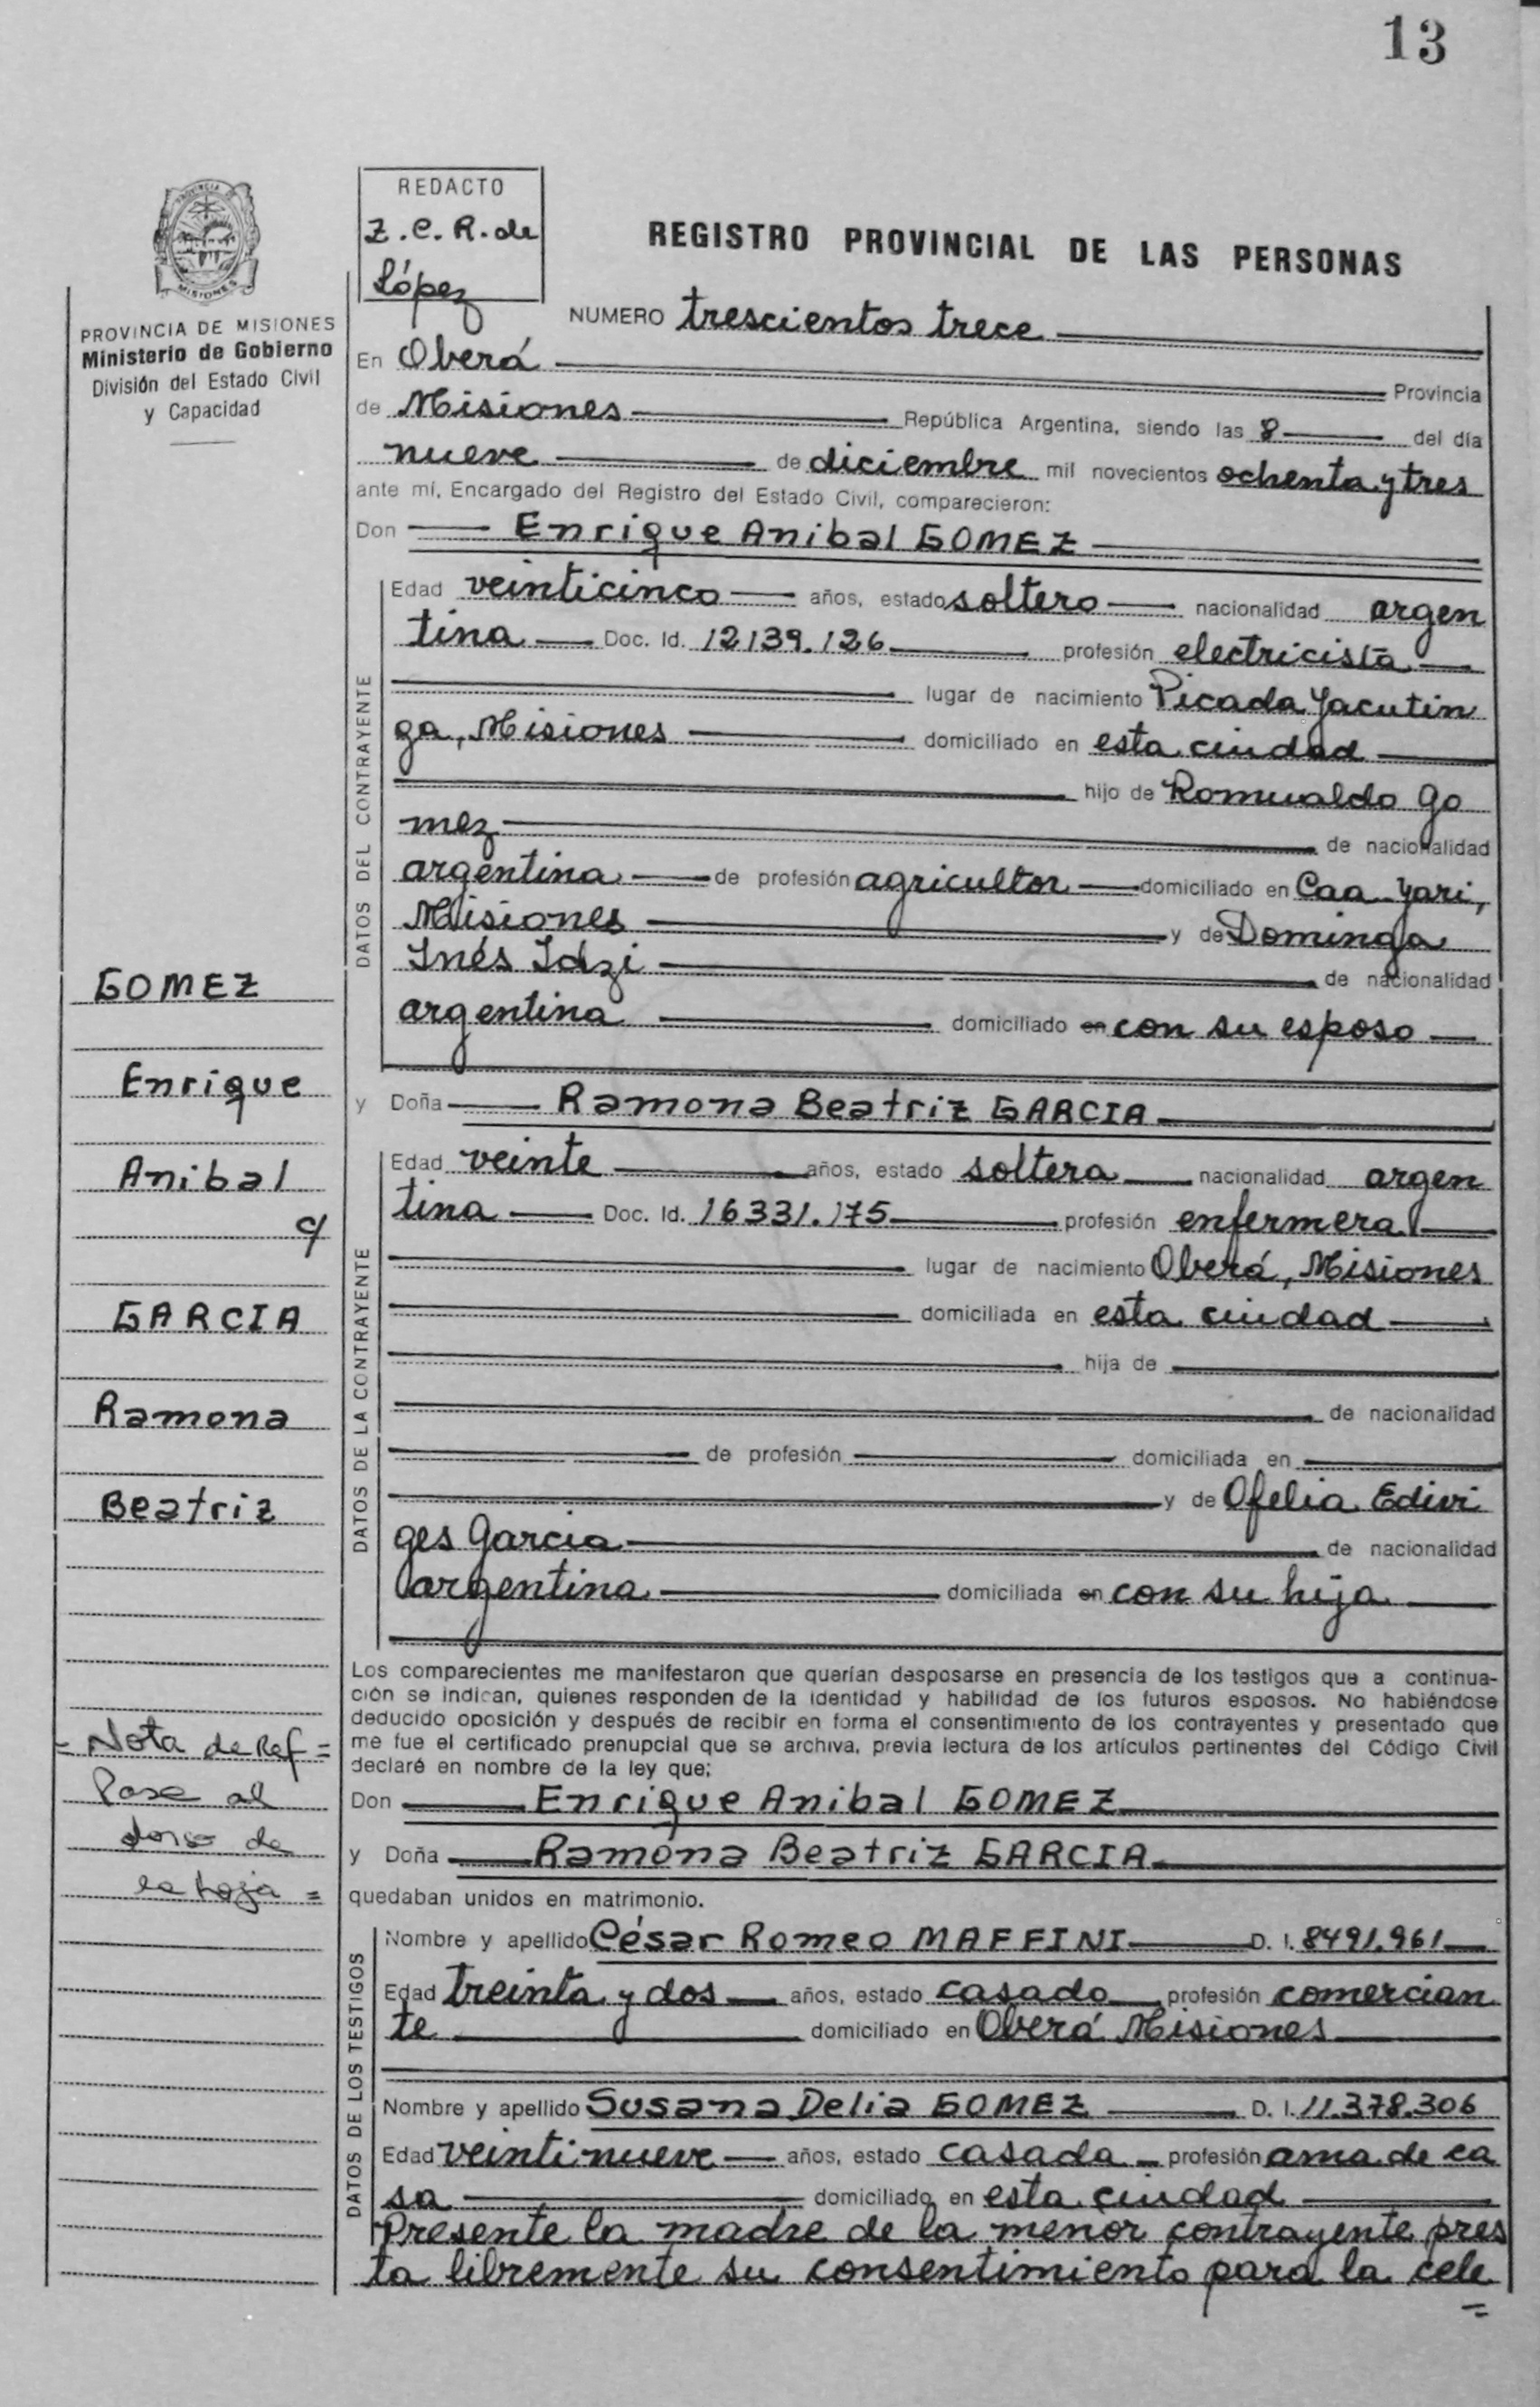 13
REDACTO
Z.C.R. de
López
REGISTRO PROVINCIAL DE LAS PERSONAS
PROVINCIA DE MISIONES
Ministerio de Gobierno
División del Estado Civil
y Capacidad
NUMERO trescientos trece
En Oberá Provincia
de Misiones República Argentina, siendo las 8 del día
nueve de diciembre mil novecientos ochenta y tres
ante mí, Encargado del Registro del Estado Civil, comparecieron:
Don Enrique Anibal GOMEZ
DATOS DEL CONTRAYENTE
Edad veinticinco años, estado soltero nacionalidad argen
tina Doc. Id. 12139.126 profesión electricista
lugar de nacimiento Picada Yacutin
ga, Misiones domiciliado en esta ciudad
hijo de Romualdo Go
mez de nacionalidad
argentina de profesión agricultor domiciliado en Caa-Yari,
Misiones y de Dominga
Inés Idzi de nacionalidad
argentina domiciliado en con su esposo
y Doña Ramona Beatriz GARCIA
DATOS DE LA CONTRAYENTE
Edad veinte años, estado soltera nacionalidad argen
tina Doc. Id. 16331.175 profesión enfermera
lugar de nacimiento Oberá, Misiones
domiciliada en esta ciudad
hija de
de nacionalidad
de profesión domiciliada en
y de Ofelia Edivi
ges Garcia de nacionalidad
argentina domiciliada en con su hija
Los comparecientes me manifestaron que querían desposarse en presencia de los testigos que a continua-
ción se indican, quienes responden de la identidad y habilidad de los futuros esposos. No habiéndose
deducido oposición y después de recibir en forma el consentimiento de los contrayentes y presentado que
me fue el certificado prenupcial que se archiva, previa lectura de los artículos pertinentes del Código Civil
declaré en nombre de la ley que;
Don Enrique Anibal GOMEZ
y Doña Ramona Beatriz GARCIA
quedaban unidos en matrimonio.
DATOS DE LOS TESTIGOS
Nombre y apellido César Romeo MAFFINI D. I. 8491.961
Edad treinta y dos años, estado casado profesión comercian
te domiciliado en Oberá Misiones
Nombre y apellido Susana Delia GOMEZ D. I. 11.378.306
Edad veintinueve años, estado casada profesión ama de ca
sa domiciliado en esta ciudad
Presente la madre de la menor contrayente pres
ta libremente su consentimiento para la cele
=
GOMEZ
Enrique
Anibal
c/
GARCIA
Ramona
Beatriz
= Nota de Ref =
Pase al
dorso de
la hoja =